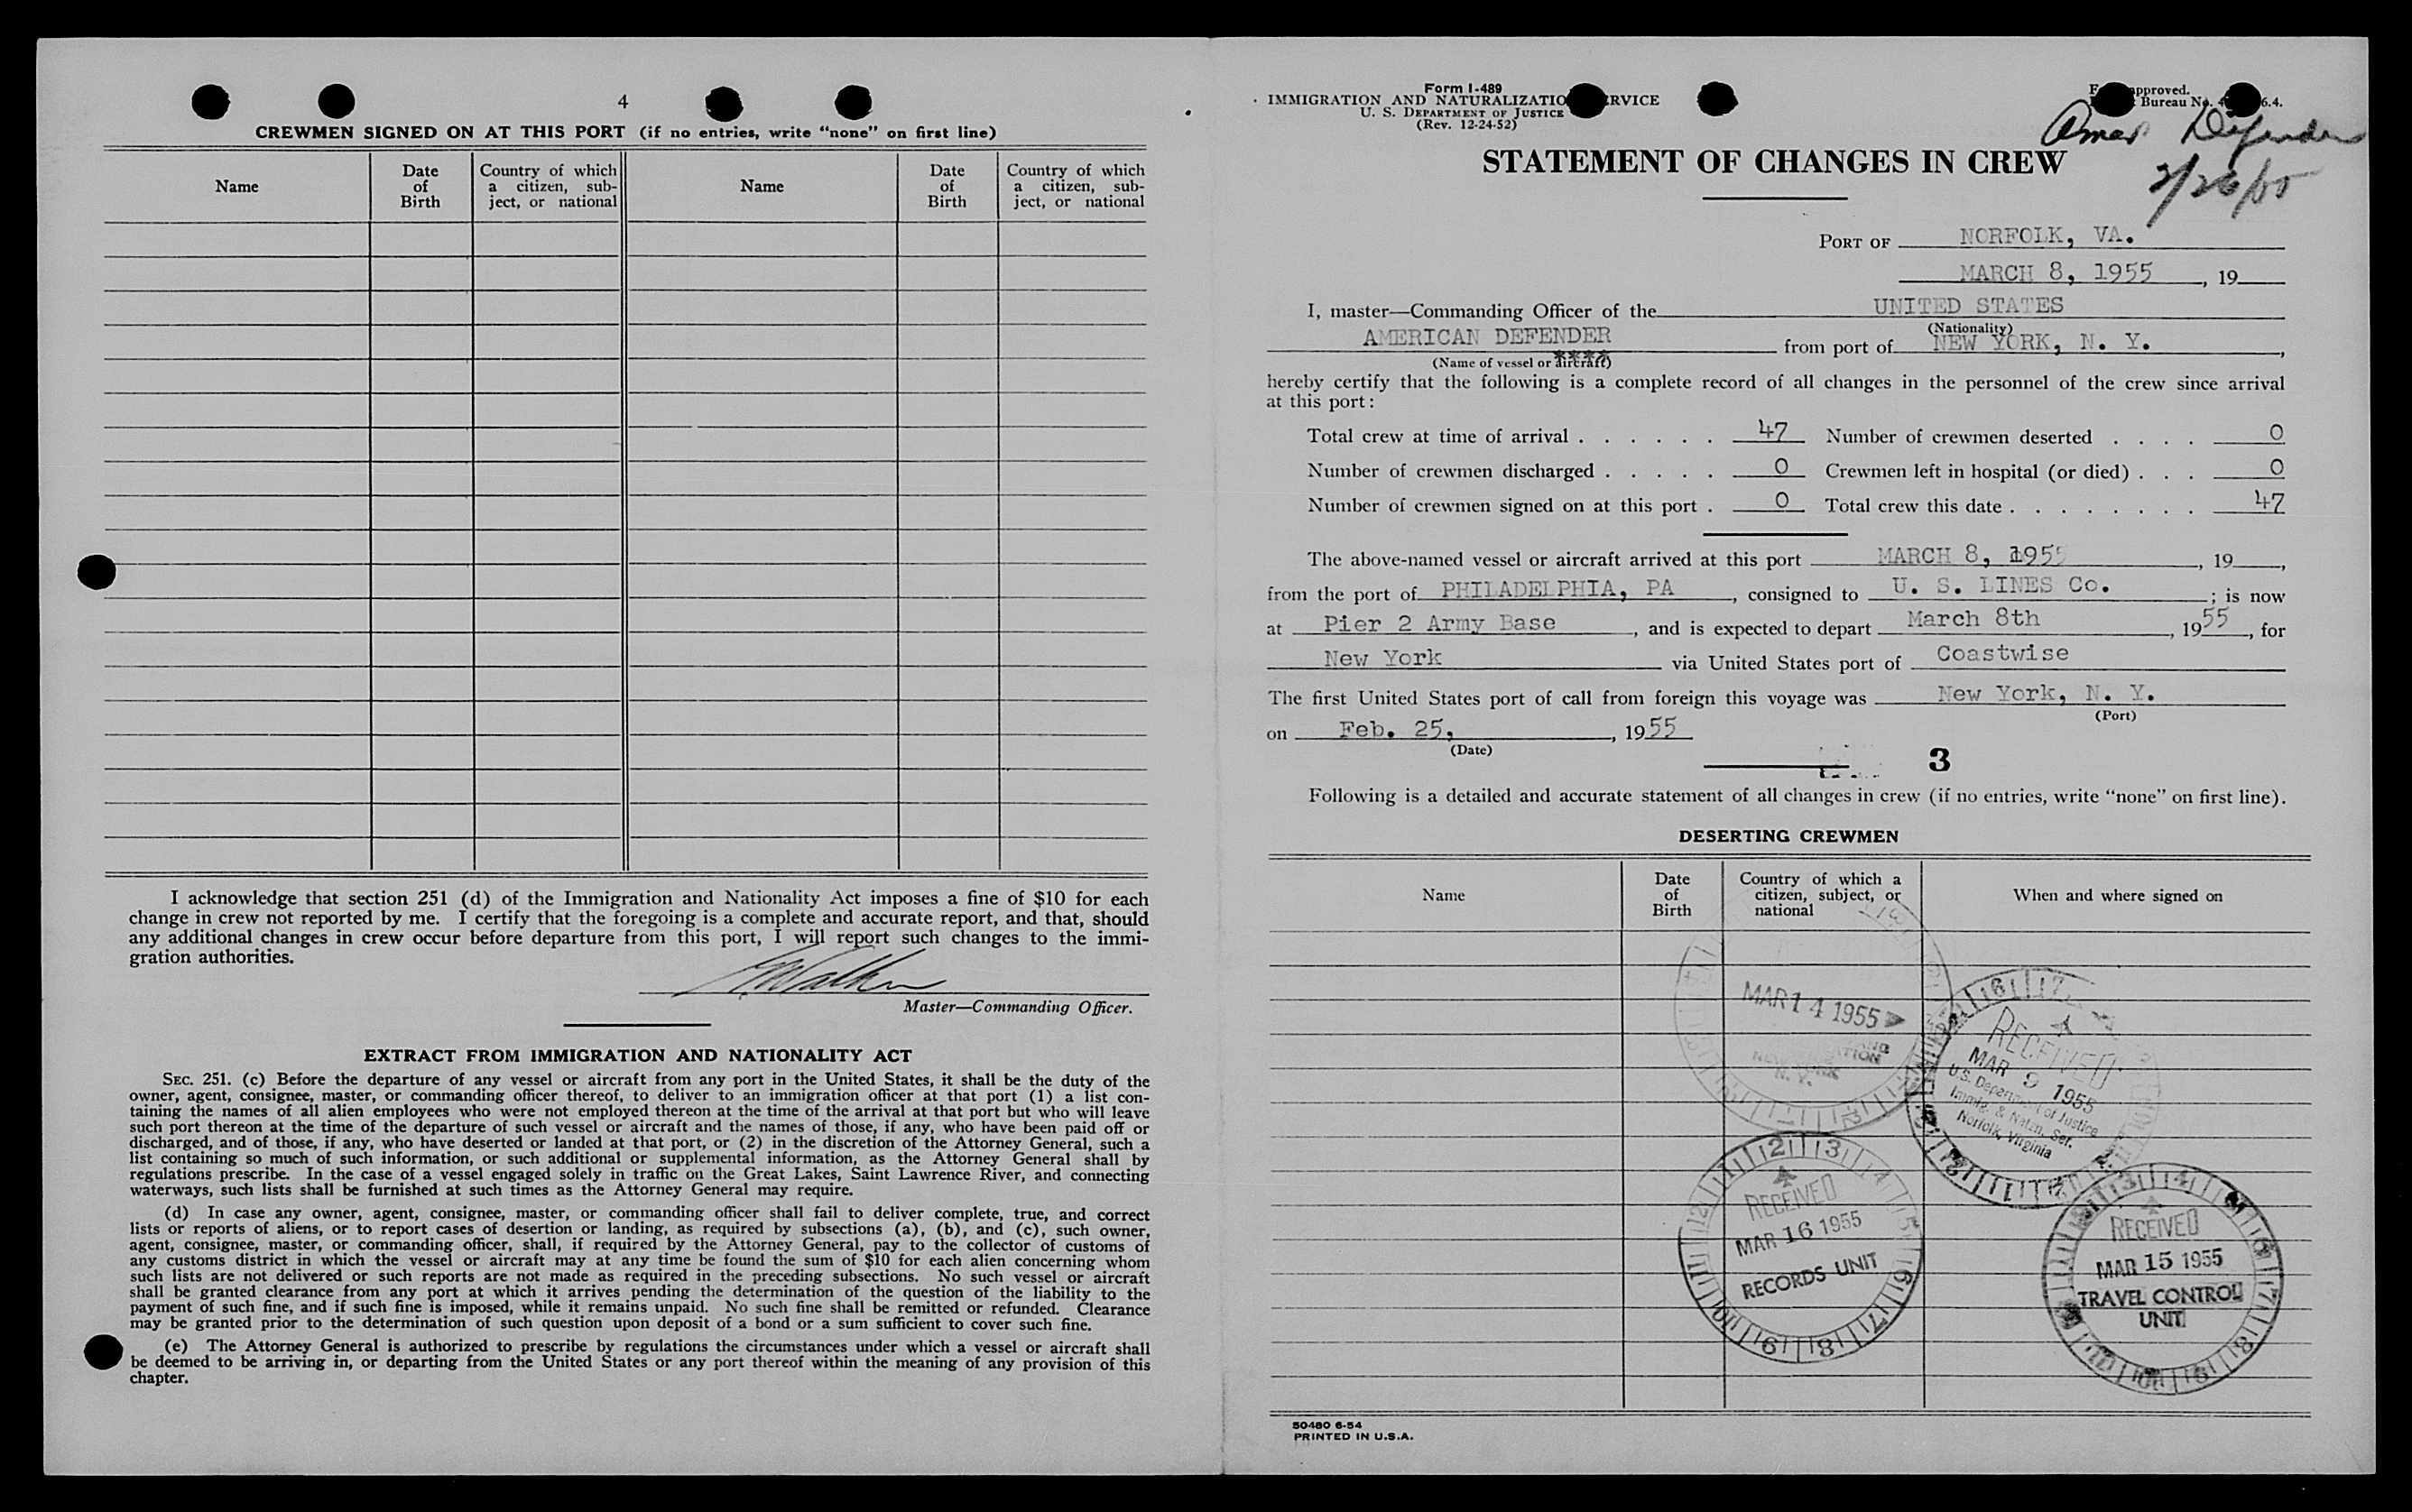 4
CREWMEN SIGNED ON AT THIS PORT (if no entries, write "none" on first line)
Name
Date of Birth
Country of which a citizen, sub-ject, or national
Name
Date of Birth
Country of which a citizen, sub-ject, or national
I acknowledge that section 251 (d) of the Immigration and Nationality Act imposes a fine of $10 for each
change in crew not reported by me. I certify that the foregoing is a complete and accurate report, and that, should
any additional changes in crew occur before departure from this port, I will report such changes to the immi-
gration authorities.
Master—Commanding Officer.
EXTRACT FROM IMMIGRATION AND NATIONALITY ACT
SEC. 251. (c) Before the departure of any vessel or aircraft from any port in the United States, it shall be the duty of the
owner, agent, consignee, master, or commanding officer thereof, to deliver to an immigration officer at that port (1) a list con-
taining the names of all alien employees who were not employed thereon at the time of the arrival at that port but who will leave
such port thereon at the time of the departure of such vessel or aircraft and the names of those, if any, who have been paid off or
discharged, and of those, if any, who have deserted or landed at that port, or (2) in the discretion of the Attorney General, such a
list containing so much of such information, or such additional or supplemental information, as the Attorney General shall by
regulations prescribe. In the case of a vessel engaged solely in traffic on the Great Lakes, Saint Lawrence River, and connecting
waterways, such lists shall be furnished at such times as the Attorney General may require.
(d) In case any owner, agent, consignee, master, or commanding officer shall fail to deliver complete, true, and correct
lists or reports of aliens, or to report cases of desertion or landing, as required by subsections (a), (b), and (c), such owner,
agent, consignee, master, or commanding officer, shall, if required by the Attorney General, pay to the collector of customs of
any customs district in which the vessel or aircraft may at any time be found the sum of $10 for each alien concerning whom
such lists are not delivered or such reports are not made as required in the preceding subsections. No such vessel or aircraft
shall be granted clearance from any port at which it arrives pending the determination of the question of the liability to the
payment of such fine, and if such fine is imposed, while it remains unpaid. No such fine shall be remitted or refunded. Clearance
may be granted prior to the determination of such question upon deposit of a bond or a sum sufficient to cover such fine.
(e) The Attorney General is authorized to prescribe by regulations the circumstances under which a vessel or aircraft shall
be deemed to be arriving in, or departing from the United States or any port thereof within the meaning of any provision of this
chapter.
Form I-489
IMMIGRATION AND NATURALIZATIO RVICE
U. S. DEPARTMENT OF JUSTICE
(Rev. 12-24-52)
pproved.
Bureau No. 6.4.
Amer Defender
2/26/55
STATEMENT OF CHANGES IN CREW
PORT OF NORFOLK, VA.
MARCH 8, 1955, 19
I, master—Commanding Officer of the UNITED STATES
(Nationality)
AMERICAN DEFENDER from port of NEW YORK, N. Y.,
(Name of vessel or aircraft)
hereby certify that the following is a complete record of all changes in the personnel of the crew since arrival
at this port:
Total crew at time of arrival . . . . . . 47 Number of crewmen deserted . . . . 0
Number of crewmen discharged . . . . . 0 Crewmen left in hospital (or died) . . . 0
Number of crewmen signed on at this port . 0 Total crew this date . . . . . . . . 47
The above-named vessel or aircraft arrived at this port MARCH 8, 1955, 19,
from the port of PHILADELPHIA, PA, consigned to U. S. LINES Co. ; is now
at Pier 2 Army Base, and is expected to depart March 8th, 1955, for
New York via United States port of Coastwise
The first United States port of call from foreign this voyage was New York, N. Y.
(Port)
on Feb. 25, , 1955
(Date)
3
Following is a detailed and accurate statement of all changes in crew (if no entries, write "none" on first line).
DESERTING CREWMEN
Name
Date of Birth
Country of which a citizen, subject, or national
When and where signed on
MAR 14 1955
RECEIVED
MAR 9 1955
U.S. Department of Justice
Immig. & Natzn. Ser.
Norfolk, Virginia
RECEIVED
MAR 16 1955
RECORDS UNIT
RECEIVED
MAR 15 1955
TRAVEL CONTROL
UNIT
50480 6-54
PRINTED IN U.S.A.